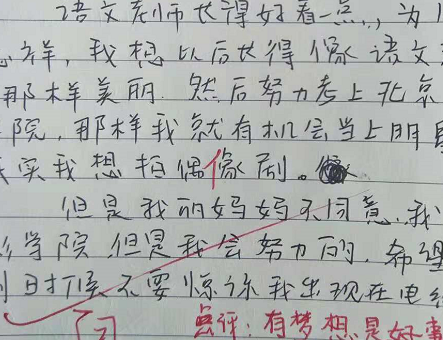 语文老师长得好看一点,为
样,我想以后长得像语文
那样美丽.然后努力考上北京
院,那样我就有机会当上明
实我想拍偶像剧。
但是我的妈妈不同意,我
学院,但是我会努力的,希
时候不要惊讶我出现在电
点评:有梦想是好事